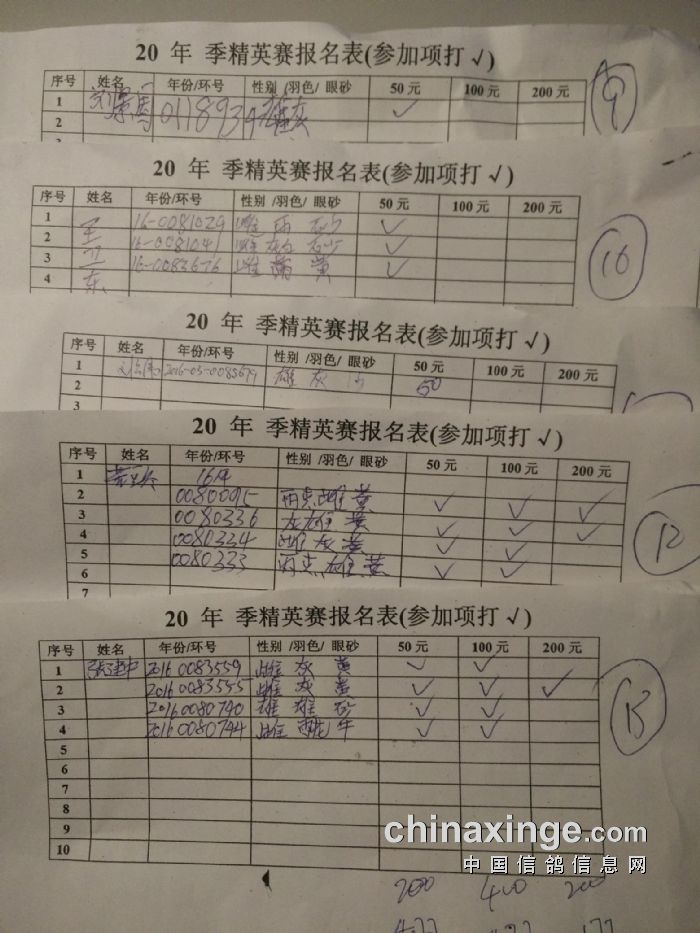 20 年 季精英赛报名表(参加项打 √)
序号 姓名 年份/环号 性别 /羽色/ 眼砂 50 元 100 元 200 元
1 √
2
9
20 年 季精英赛报名表(参加项打 √)
序号 姓名 年份/环号 性别 /羽色/ 眼砂 50 元 100 元 200 元
1 王 16-0081029 雌 雨 砂 √
2 16-008104 雌 砂 √
3 16-0083676 雌 黄 √
4 东
20 年 季精英赛报名表(参加项打 √)
序号 姓名 年份/环号 性别 /羽色/ 眼砂 50 元 100 元 200 元
1 2016-03-0083679 雄 灰 50
2
3
20 年 季精英赛报名表(参加项打 √)
序号 姓名 年份/环号 性别 /羽色/ 眼砂 50 元 100 元 200 元
1 16年
2 0080095 雨点 雌 黄 √ √ √
3 0080336 灰 雄 黄 √ √ √
4 0080334 雌 灰 黄 √ √
5 0080333 雨点 雄 黄 √ √
6
7
12
20 年 季精英赛报名表(参加项打 √)
序号 姓名 年份/环号 性别 /羽色/ 眼砂 50 元 100 元 200 元
1 张建中 2016 0083559 雌 灰 黄 √ √
2 2016 0083555 雌 灰 黄 √ √ √
3 2016 0080740 雄 雄 砂 √ √
4 2016 0080744 雌 牛 √ √
5
6
7
8
9
10
chinaxinge.com
中国信鸽信息网
200 400 200